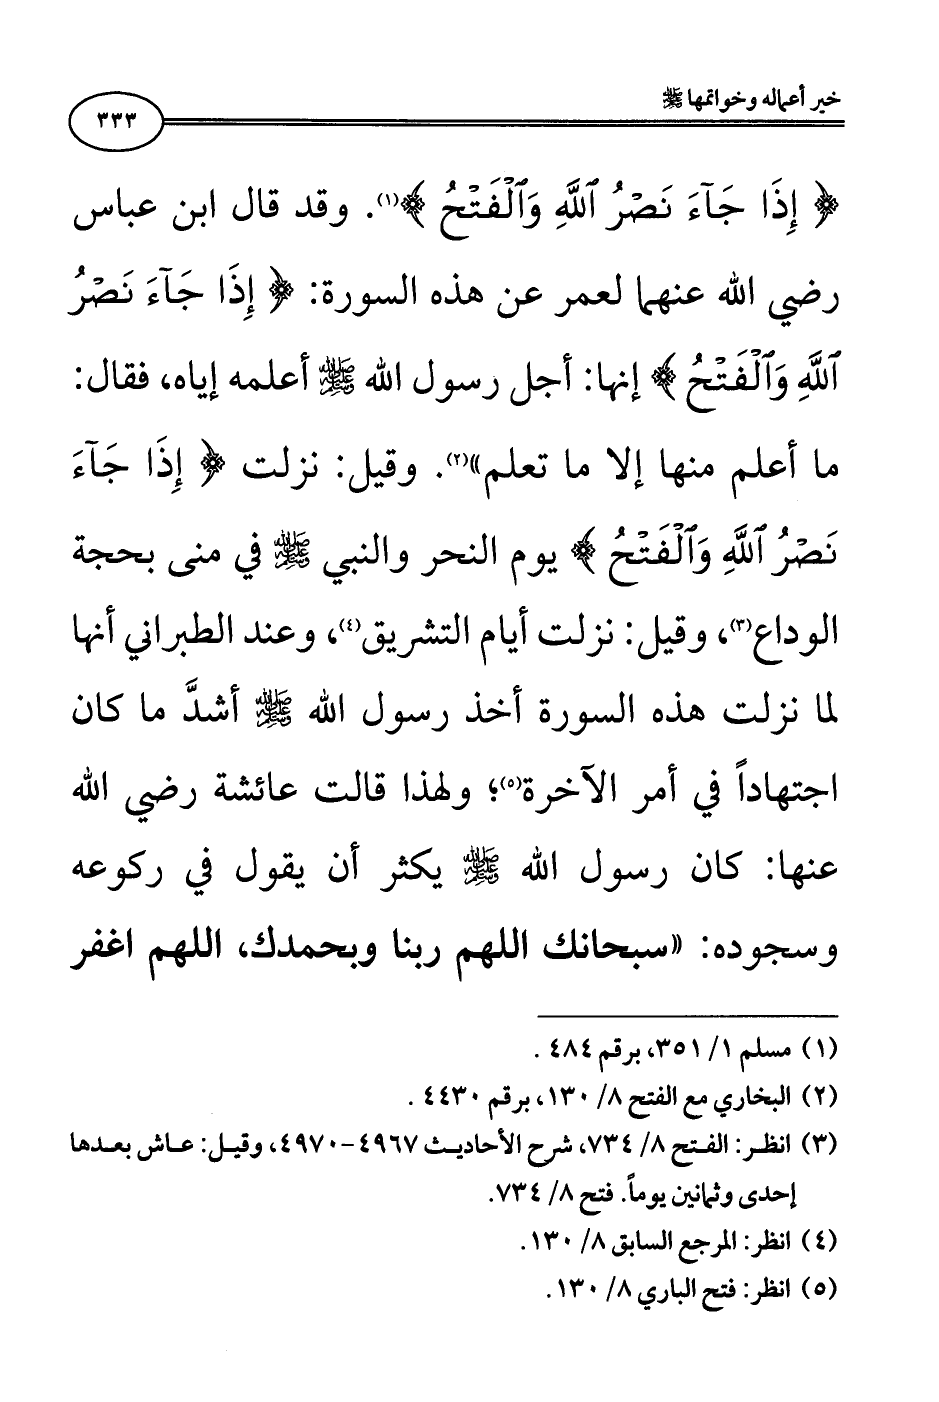 خير أعماله وخواتمها ﷺ
٣٣٣
﴿ إِذَا جَآءَ نَصْرُ ٱللَّهِ وَٱلْفَتْحُ ﴾(١). وقد قال ابن عباس
رضي الله عنهما لعمر عن هذه السورة: ﴿ إِذَا جَآءَ نَصْرُ
ٱللَّهِ وَٱلْفَتْحُ ﴾ إنها: أجل رسول الله ﷺ أعلمه إياه، فقال:
ما أعلم منها إلا ما تعلم»(٢). وقيل: نزلت ﴿ إِذَا جَآءَ
نَصْرُ ٱللَّهِ وَٱلْفَتْحُ ﴾ يوم النحر والنبي ﷺ في منى بحجة
الوداع(٣)، وقيل: نزلت أيام التشريق(٤)، وعند الطبراني أنها
لما نزلت هذه السورة أخذ رسول الله ﷺ أشدَّ ما كان
اجتهاداً في أمر الآخرة(٥)؛ ولهذا قالت عائشة رضي الله
عنها: كان رسول الله ﷺ يكثر أن يقول في ركوعه
وسجوده: «سبحانك اللهم ربنا وبحمدك، اللهم اغفر
(١) مسلم ١/ ٣٥١، برقم ٤٨٤ .
(٢) البخاري مع الفتح ٨/ ١٣٠، برقم ٤٤٣٠ .
(٣) انظر: الفتح ٨/ ٧٣٤، شرح الأحاديث ٤٩٦٧-٤٩٧٠، وقيل: عاش بعدها
إحدى وثمانين يوماً. فتح ٨/ ٧٣٤.
(٤) انظر: المرجع السابق ٨/ ١٣٠.
(٥) انظر: فتح الباري ٨/ ١٣٠.